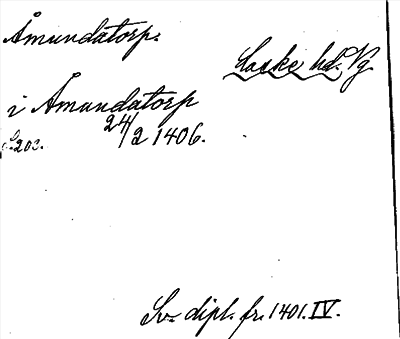 Åmundatorp.
Laske hd. Vg.
i Åmundatorp
24/2 1406.
s. 203.
Sv. dipl. fr. 1401. IV.